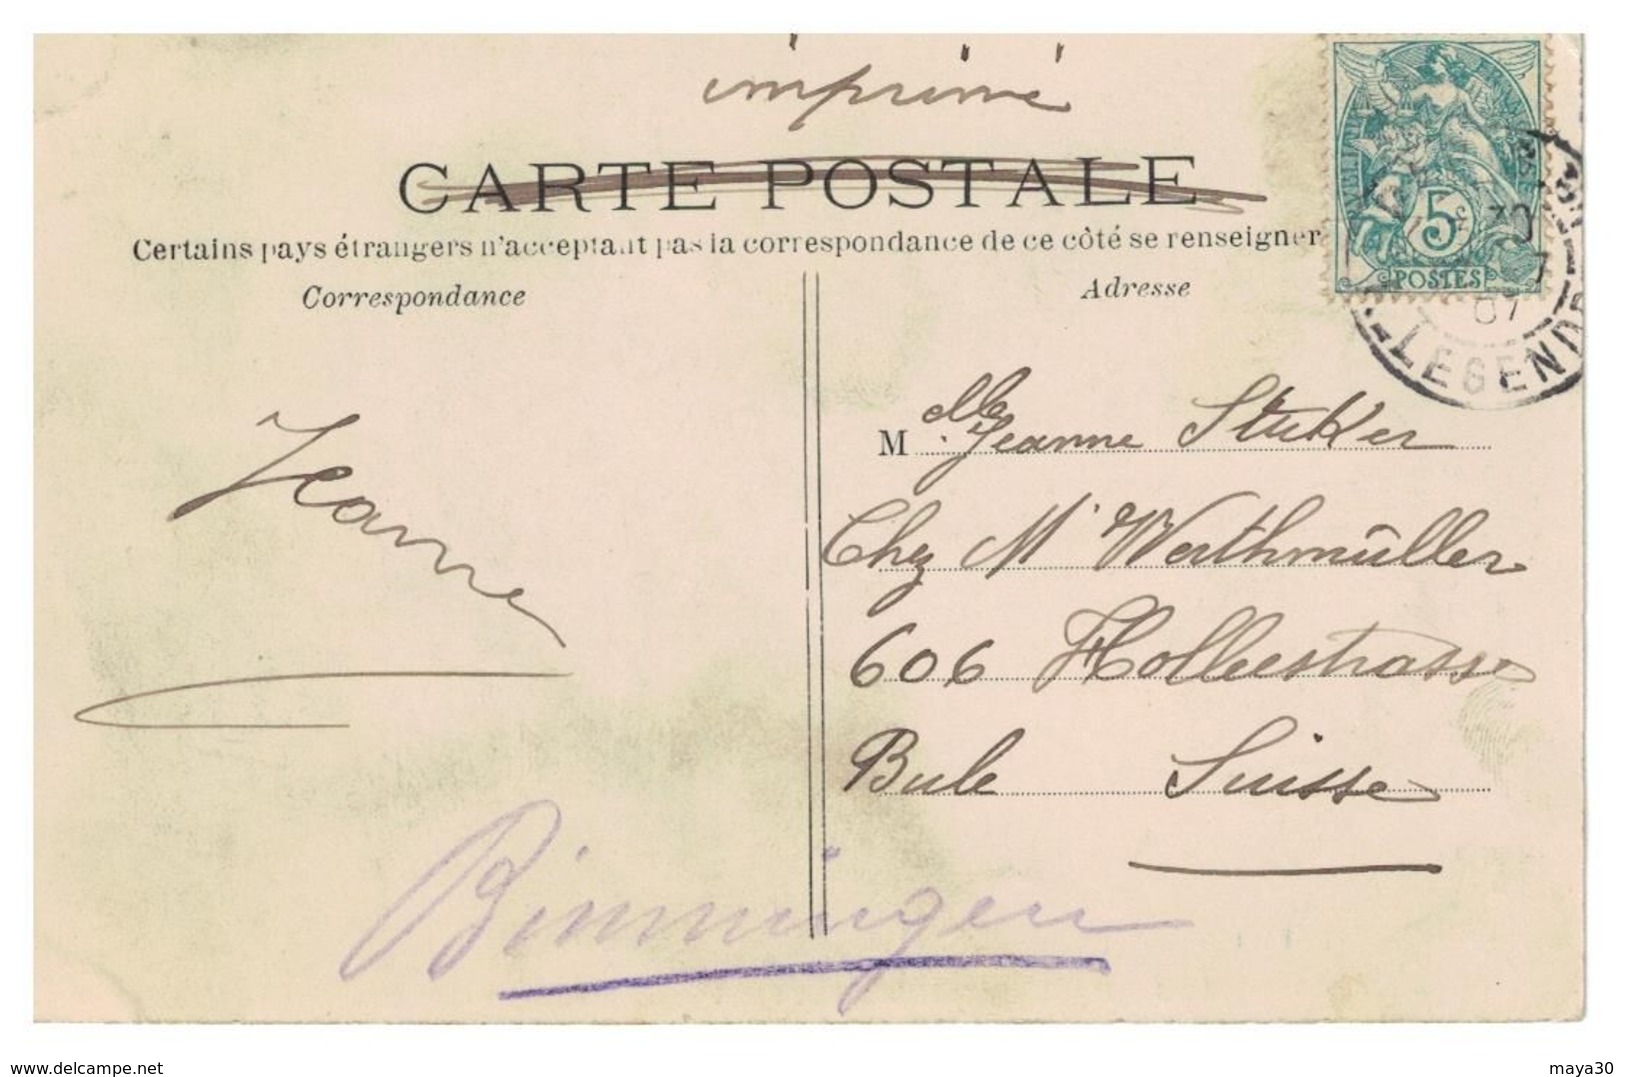 imprimé
CARTE POSTALE
Certains pays étrangers n'acceptant pas la correspondance de ce côté se renseigner
Correspondance
Adresse
5c
POSTES
30
7
07
LEGENDR
Jeanne
Mlle Jeanne Stuker
Chez Mr Werthmüller
606 Holleestrasse
Bâle Suisse
Binningen
www.delcampe.net
maya30